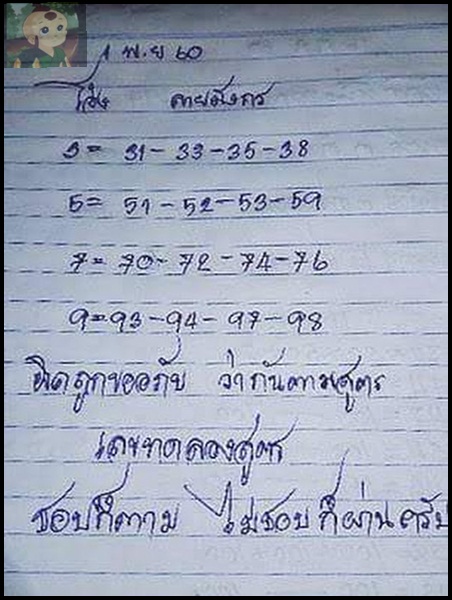 1 พ.ย 60
โต้ง ลายมังกร
3= 31-33-35-38
5= 51-52-53-59
7=70-72-74-76
9=93-94-97-98
ผิดถูกขออภัย ว่ากันตามสูตร
เลขทดลองสูตร
ชอบก็ตาม ไม่ชอบก็ผ่านครับ